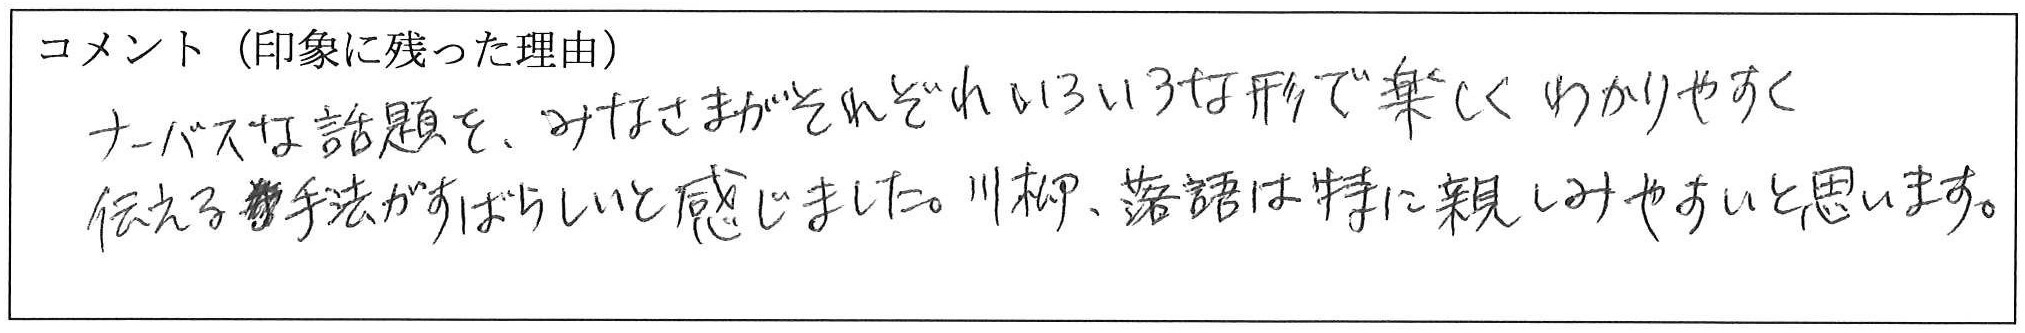 コメント（印象に残った理由）
ナーバスな話題を、みなさまがそれぞれいろいろな形で楽しくわかりやすく
伝える手法がすばらしいと感じました。川柳、落語は特に親しみやすいと思います。